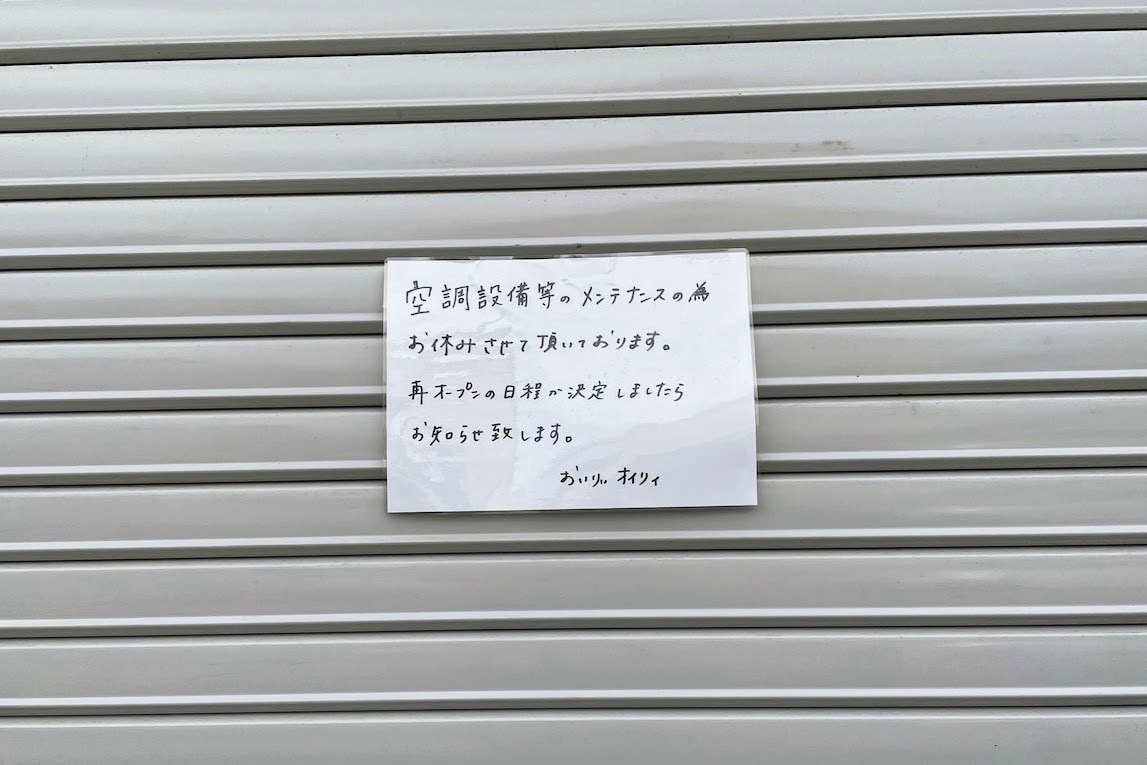 空調設備等のメンテナンスの為
お休みさせて頂いております。
再オープンの日程が決定しましたら
お知らせ致します。
おいりぃ オイリィ